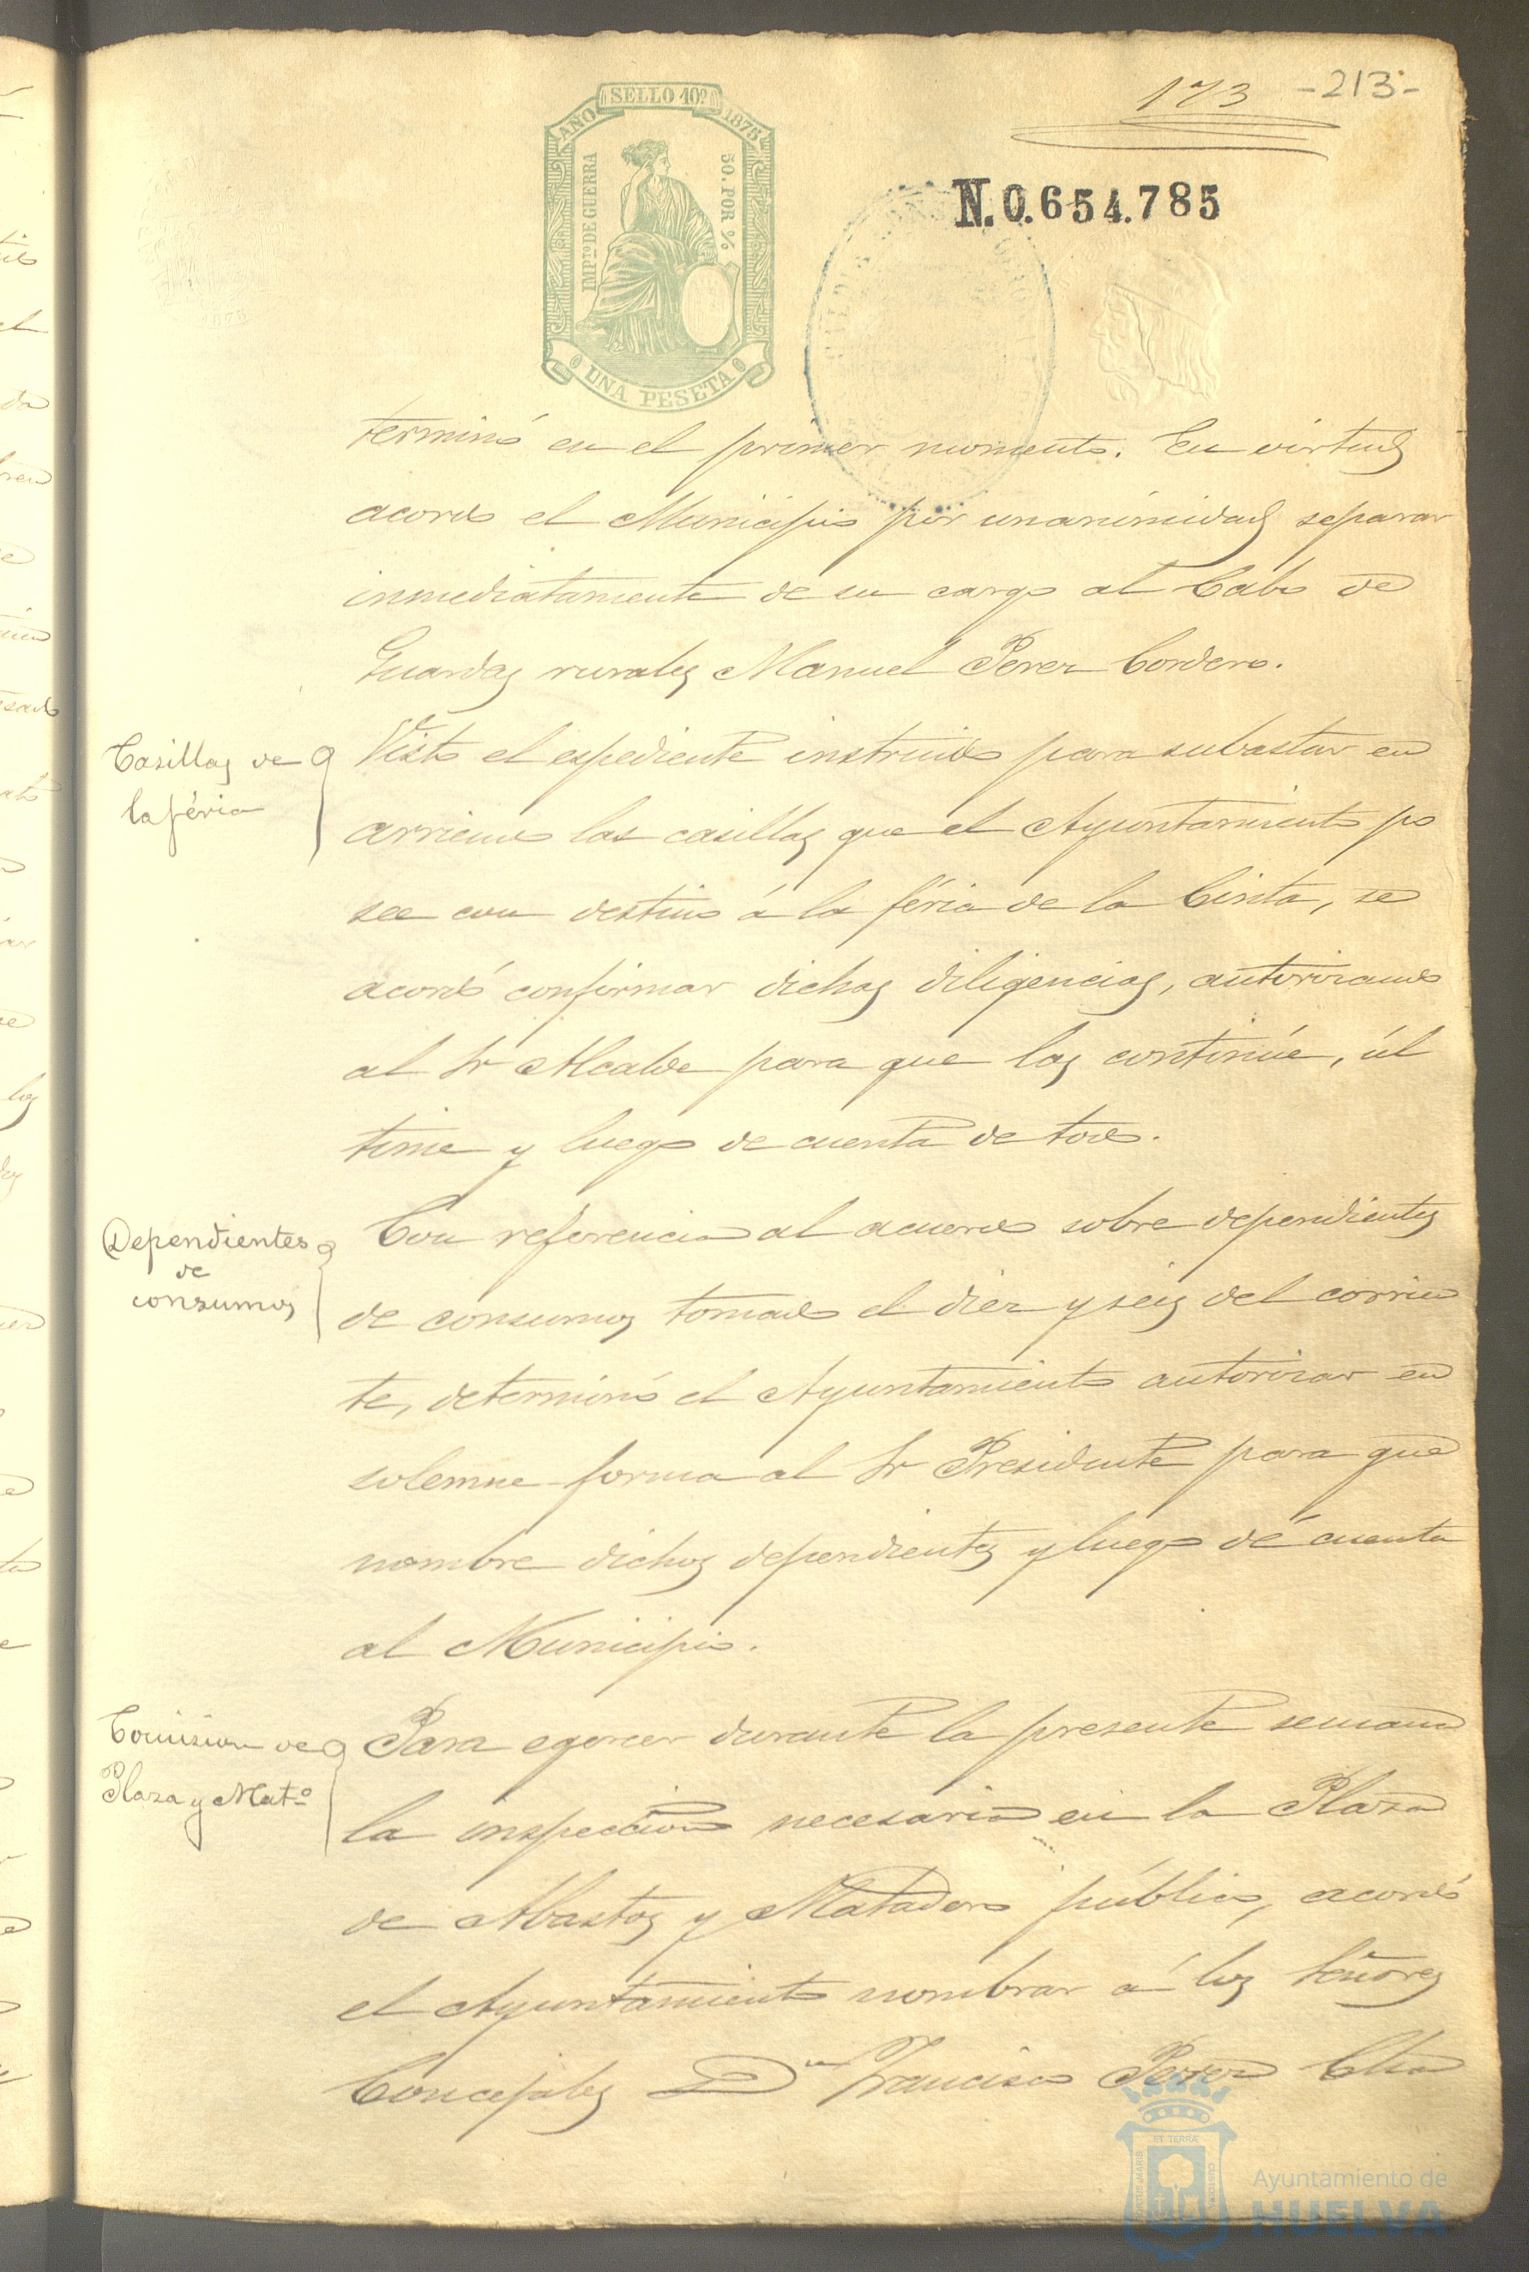 173 -213-
SELLO 10º
AÑO 1876
IMPTO DE GUERRA
50. POR %
UNA PESETA
N.0.654.785
terminó en el primer momento. En virtud
acordó el Municipio por unanimidad separar
inmediatamente de su cargo al Cabo de
Guardas rurales Manuel Perez Cordero.
Casillas de
la féria
Visto el espediente instruido para subastar en
arriendo las casillas que el Ayuntamiento po
see con destino á la féria de la Cinta, se
acordó confirmar dichas diligencias, autorizando
al Sr Alcalde para que las continúe, úl
time y luego de cuenta de todo.
Dependientes
de
consumos
Con referencia al acuerdo sobre dependientes
de consumos tomado el diez y seis del corrien
te, determinó el Ayuntamiento autorizar en
solemne forma al Sr Presidente para que
nombre dichos dependientes y luego dé cuenta
al Municipio.
Comision de
Plaza y Matº
Para egercer durante la presente semana
la inspeccion necesaria en la Plaza
de Abastos y Matadero público, acordó
el Ayuntamiento nombrar á los Señores
Concejales Dn Francisco Perez
ET TERRÆ
PORTUS MARIS
CUSTODIA
Ayuntamiento de
HUELVA